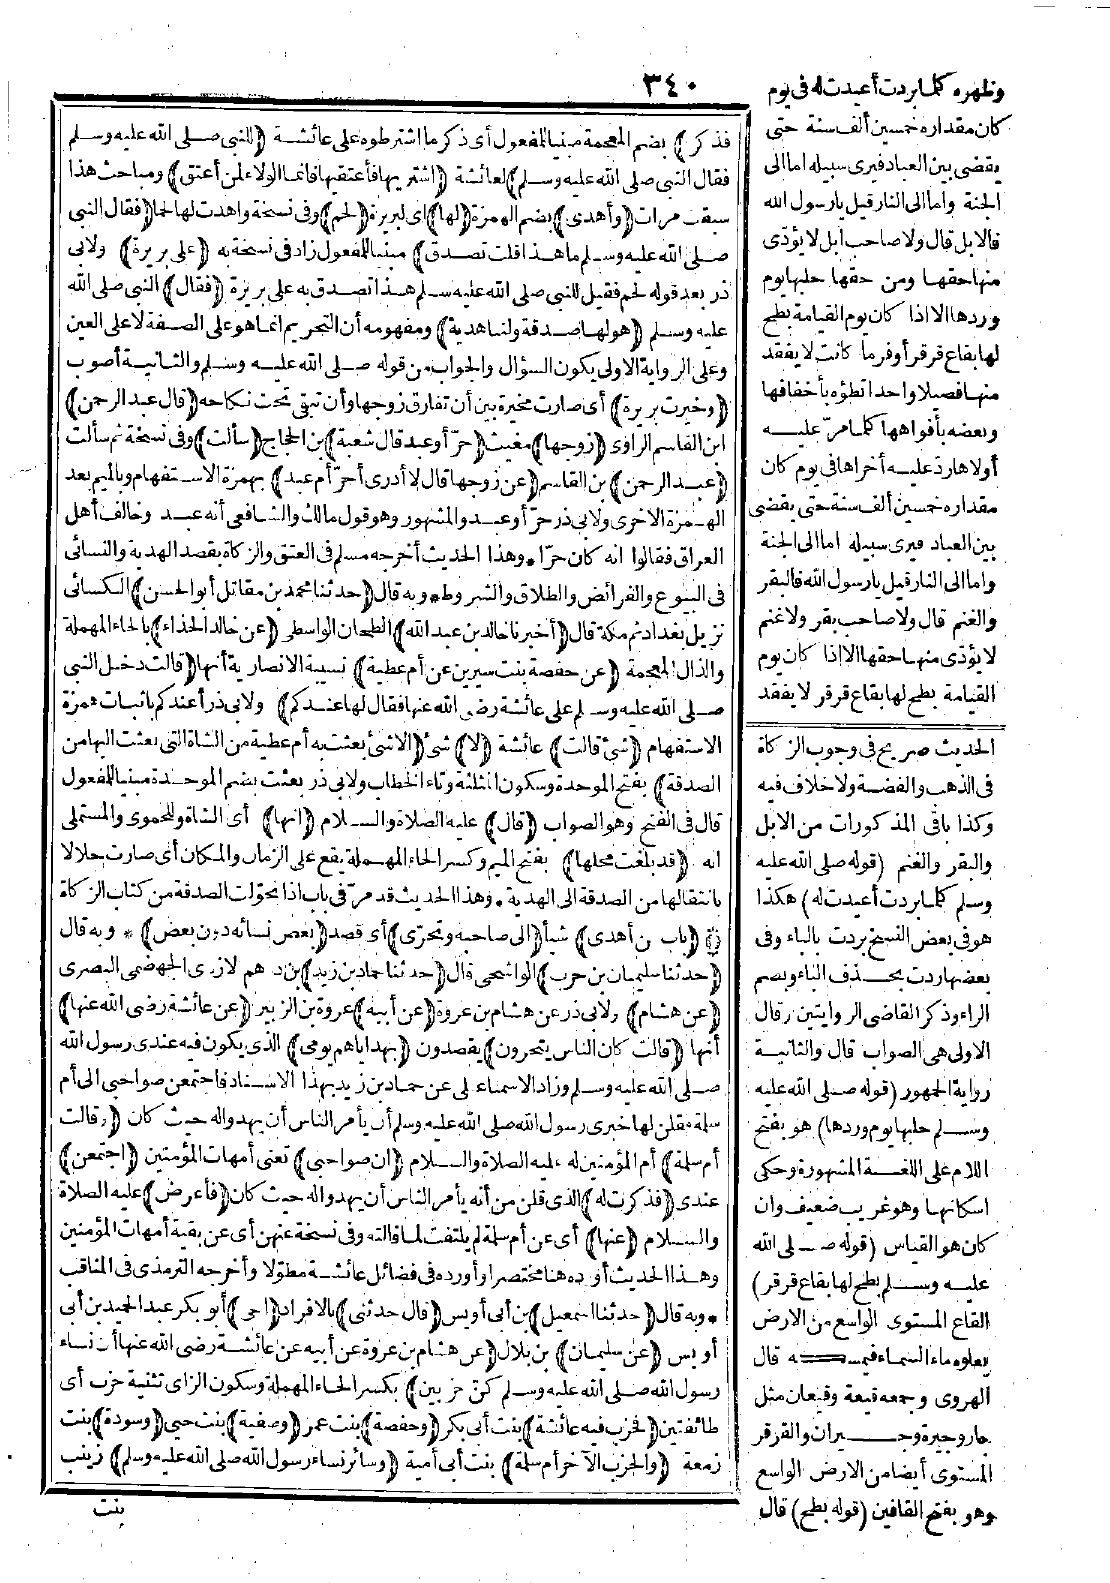 ٣٤٠
فذكر) بضم المعجمة مبنيا للمفعول أى ذكر ما اشترطوه على عائشة (للنبى صلى الله عليه وسلم
فقال النبى صلى الله عليه وسلم) لعائشة (اشتريها فأعتقيها فانما الولاء لمن أعتق) ومباحث هذا
سبقت مرات (وأهدى) بضم الهمزة (لها) اى لبريرة (لحم) وفى نسخة واهدت لها لحما (فقال النبى
صلى الله عليه وسلم ما هذا قلت تصدق) مبنيا للمفعول زاد فى نسخة به (على بريرة) ولابى
ذر بعد قوله لحم فقيل للنبى صلى الله عليه وسلم هذا تصدق به على بريرة (فقال) النبى صلى الله
عليه وسلم (هو لها صدقة ولنا هدية) ومفهومه أن التحريم انما هو على الصفة لا على العين
وعلى الرواية الاولى يكون السؤال والجواب من قوله صلى الله عليه وسلم والثانية أصوب
(وخيرت بريرة) أى صارت مخيرة بين أن تفارق زوجها وأن تبقى تحت نكاحه (قال عبد الرحمن)
ابن القاسم الراوى (زوجها) مغيث (حرّ أو عبد قال شعبة) بن الحجاج (سألت) وفى نسخة ثم سألت
(عبد الرحمن) بن القاسم (عن زوجها قال لا أدرى أحرّ أم عبد) بهمزة الاستفهام وبالميم بعد
الهمزة الاخرى ولابى ذر حرّ أو عبد والمشهور وهو قول مالك والشافعى أنه عبد وخالف أهل
العراق فقالوا انه كان حرّا * وهذا الحديث أخرجه مسلم فى العتق والزكاة بقصد الهدية والنسائى
فى البيوع والفرائض والطلاق والشروط * وبه قال (حدثنا محمد بن مقاتل أبو الحسن) الكسائى
نزيل بغداد ثم مكة قال (أخبرنا خالد بن عبد الله) الطحان الواسطى (عن خالد الحذاء) بالحاء المهملة
والذال المعجمة (عن حفصة بنت سيرين عن أم عطية) نسيبة الانصارية أنها (قالت دخل النبى
صلى الله عليه وسلم على عائشة رضى الله عنها فقال لها عندكم) ولابى ذر أعندكم باثبات همزة
الاستفهام (شئ قالت) عائشة (لا) شئ (الا شئ بعثت به أم عطية من الشاة التى بعثت اليها من
الصدقة) بفتح الموحدة وسكون المثلثة وتاء الخطاب ولابى ذر بعثت بضم الموحدة مبنيا للمفعول
قال فى الفتح وهو الصواب (قال) عليه الصلاة والسلام (انها) أى الشاة وللحموى والمستملى
انه (قد بلغت محلها) بفتح الميم وكسر الحاء المهملة يقع على الزمان والمكان أى صارت حلالا
بانتقالها من الصدقة الى الهدية * وهذا الحديث قد مرّ فى باب اذا تحوّلت الصدقة من كتاب الزكاة
(باب من أهدى) شيأ (الى صاحبه وتحرّى) أى قصد (بعض نسائه دون بعض) * وبه قال
(حدثنا سليمان بن حرب) الواشحى قال (حدثنا حماد بن زيد) بن درهم الازدى الجهضمى البصرى
(عن هشام) ولابى ذر عن هشام بن عروة (عن أبيه) عروة بن الزبير (عن عائشة رضى الله عنها)
أنها (قالت كان الناس يتحرون) يقصدون (بهداياهم يومى) الذى يكون فيه عندى رسول الله
صلى الله عليه وسلم وزاد الاسماعيلى عن حماد بن زيد بهذا الاسناد فاجتمعن صواحبى الى أم
سلمة فقلن لها خبرى رسول الله صلى الله عليه وسلم أن يأمر الناس أن يهدوا له حيث كان (وقالت
أم سلمة) أم المؤمنين له عليه الصلاة والسلام (ان صواحبى) تعنى أمهات المؤمنين (اجتمعن)
عندى (فذكرت له) الذى قلن من أنه يأمر الناس أن يهدوا له حيث كان (فأعرض) عليه الصلاة
والسلام (عنها) أى عن أم سلمة لم يلتفت لما قالته وفى نسخة عنهن أى عن بقية أمهات المؤمنين
وهذا الحديث أورده هنا مختصرا وأورده فى فضائل عائشة مطوّلا وأخرجه الترمذى فى المناقب
* وبه قال (حدثنا اسمعيل) بن أبى أويس (قال حدثنى) بالافراد (اخى) أبو بكر عبد الحميد بن أبى
أويس (عن سليمان) بن بلال (عن هشام بن عروة عن أبيه عن عائشة رضى الله عنها أن نساء
رسول الله صلى الله عليه وسلم كن حزبين) بكسر الحاء المهملة وسكون الزاى تثنية حزب أى
طائفتين (فحزب فيه عائشة) بنت أبى بكر (وحفصة) بنت عمر (وصفية) بنت حيى (وسودة) بنت
زمعة (والحزب الآخر أم سلمة) بنت أبى أمية (وسائر نساء رسول الله صلى الله عليه وسلم) زينب
بنت
وظهره كلما بردت أعيدت له فى يوم
كان مقداره خمسين ألف سنة حتى
يقضى بين العباد فيرى سبيله اما الى
الجنة واما الى النار قيل يا رسول الله
فالابل قال ولا صاحب ابل لا يؤدى
منها حقها ومن حقها حلبها يوم
وردها الا اذا كان يوم القيامة بطح
لها بقاع قرقر أوفر ما كانت لا يفقد
منها فصيلا واحدا تطؤه بأخفافها
وتعضه بأفواهها كلما مرّ عليه
أولاها رد عليه أخراها فى يوم كان
مقداره خمسين ألف سنة حتى يقضى
بين العباد فيرى سبيله اما الى الجنة
واما الى النار قيل يا رسول الله فالبقر
والغنم قال ولا صاحب بقر ولا غنم
لا يؤدى منها حقها الا اذا كان يوم
القيامة بطح لها بقاع قرقر لا يفقد
الحديث صريح فى وجوب الزكاة
فى الذهب والفضة ولا خلاف فيه
وكذا باقى المذكورات من الابل
والبقر والغنم (قوله صلى الله عليه
وسلم كلما بردت أعيدت له) هكذا
هو فى بعض النسخ بردت بالباء وفى
بعضها ردت بحذف الباء وبضم
الراء وذكر القاضى الروايتين وقال
الاولى هى الصواب قال والثانية
رواية الجمهور (قوله صلى الله عليه
وسلم حلبها يوم وردها) هو بفتح
اللام على اللغة المشهورة وحكى
اسكانها وهو غريب ضعيف وان
كان هو القياس (قوله صلى الله
عليه وسلم بطح لها بقاع قرقر)
القاع المستوى الواسع من الارض
يعلوه ماء السماء فيمسكه قال
الهروى وجمعه قيعة وقيعان مثل
جار وجيرة وجيران والقرقر
المستوى أيضا من الارض الواسع
وهو بفتح القافين (قوله بطح) قال